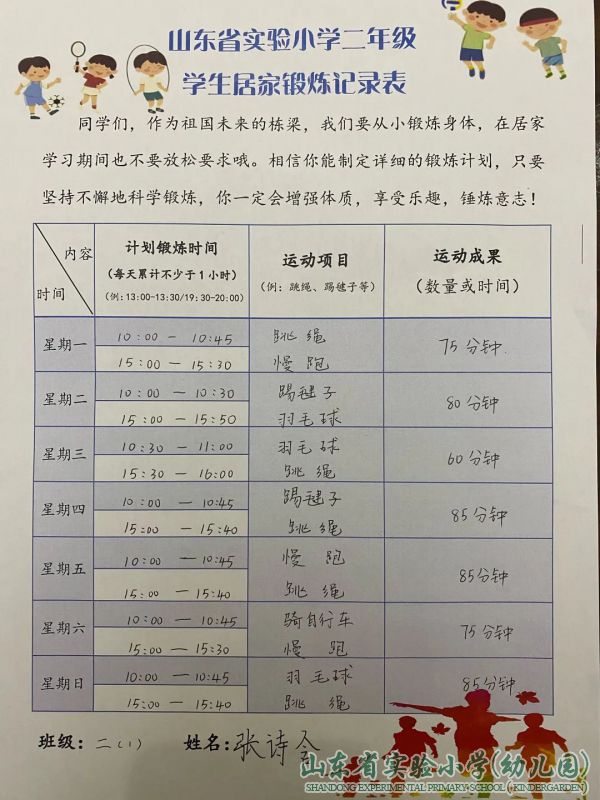 山东省实验小学二年级
学生居家锻炼记录表
同学们，作为祖国未来的栋梁，我们要从小锻炼身体，在居家
学习期间也不要放松要求哦。相信你能制定详细的锻炼计划，只要
坚持不懈地科学锻炼，你一定会增强体质，享受乐趣，锤炼意志！
内容
时间
计划锻炼时间
（每天累计不少于1小时）
（例：13:00-13:30/19:30-20:00）
运动项目
（例：跳绳、踢毽子等）
运动成果
（数量或时间）
星期一
10:00 — 10:45 跳绳
15:00 — 15:30 慢跑
75分钟.
星期二
10:00 — 10:30 踢毽子
15:00 — 15:50 羽毛球
80分钟
星期三
10:30 — 11:00 羽毛球
15:30 — 16:00 跳绳
60分钟
星期四
10:00 — 10:45 踢毽子
15:00 — 15:40 跳绳
85分钟
星期五
10:00 — 10:45 慢跑
15:00 — 15:40 跳绳
85分钟
星期六
10:00 — 10:45 骑自行车
15:00 — 15:30 慢跑
75分钟
星期日
10:00 — 10:45 羽毛球
15:00 — 15:40 跳绳
85分钟
班级：二（1） 姓名：张诗
山东省实验小学(幼儿园)
SHANDONG EXPERIMENTAL PRIMARY SCHOOL (KINDERGARDEN)